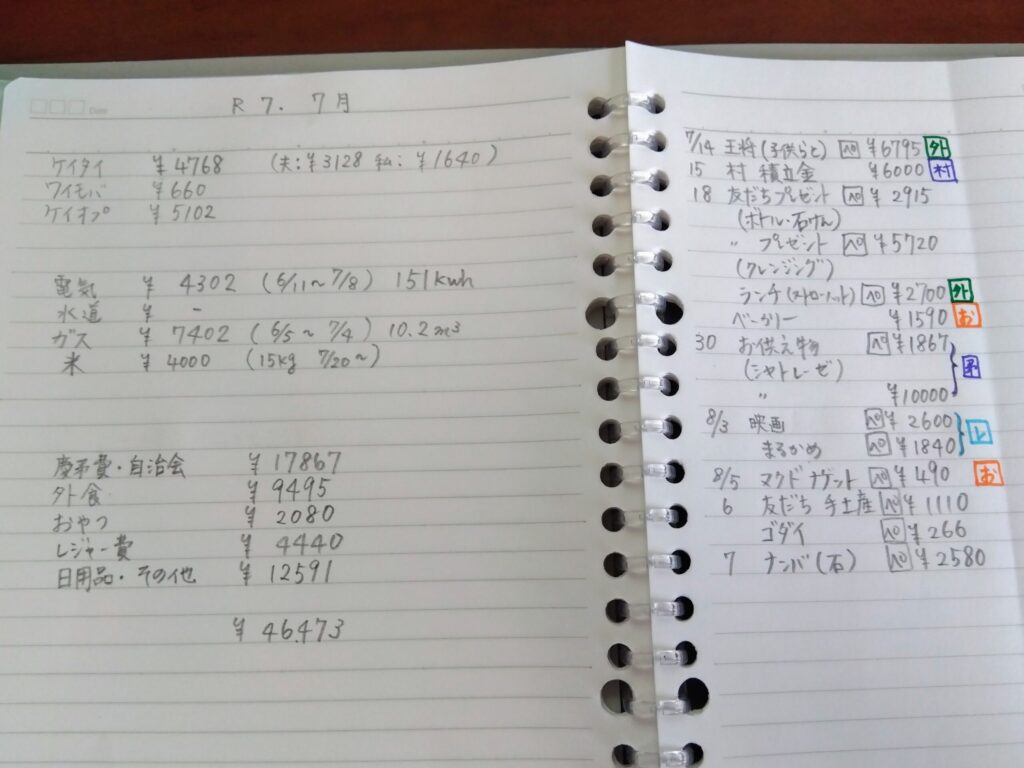 Date
R7. 7月
ケイタイ ¥4768 (夫:¥3128 私:¥1640)
ワイモバ ¥660
ケイオプ ¥5102
電気 ¥ 4302 (6/11〜7/8) 151kwh
水道 ¥ -
ガス ¥ 7402 (6/5〜7/4) 10.2m³
米 ¥4000 (15kg 7/20〜)
慶弔費・自治会 ¥17867
外食 ¥9495
おやつ ¥2080
レジャー費 ¥4440
日用品・その他 ¥12591
¥46.473
7/14 王将(子供らと) ペ ¥6795 外
15 村 積立金 ¥6000 村
18 友だちプレゼント ペ ¥2915
(ボトル・石けん)
〃 プレゼント ペ ¥5720
(クレンジング)
ランチ(ストローハット) ペ ¥2700 外
ベーカリー ¥1590 お
30 お供え物 ペ ¥1867
(シャトレーゼ)
〃 ¥10000
8/3 映画 ペ ¥2600 レ
まるかめ ペ ¥1840
8/5 マクド ナゲット ペ ¥490 お
6 友だち 手土産 ペ ¥1110
ゴダイ ペ ¥266
7 ナンバ(石) ペ ¥2580